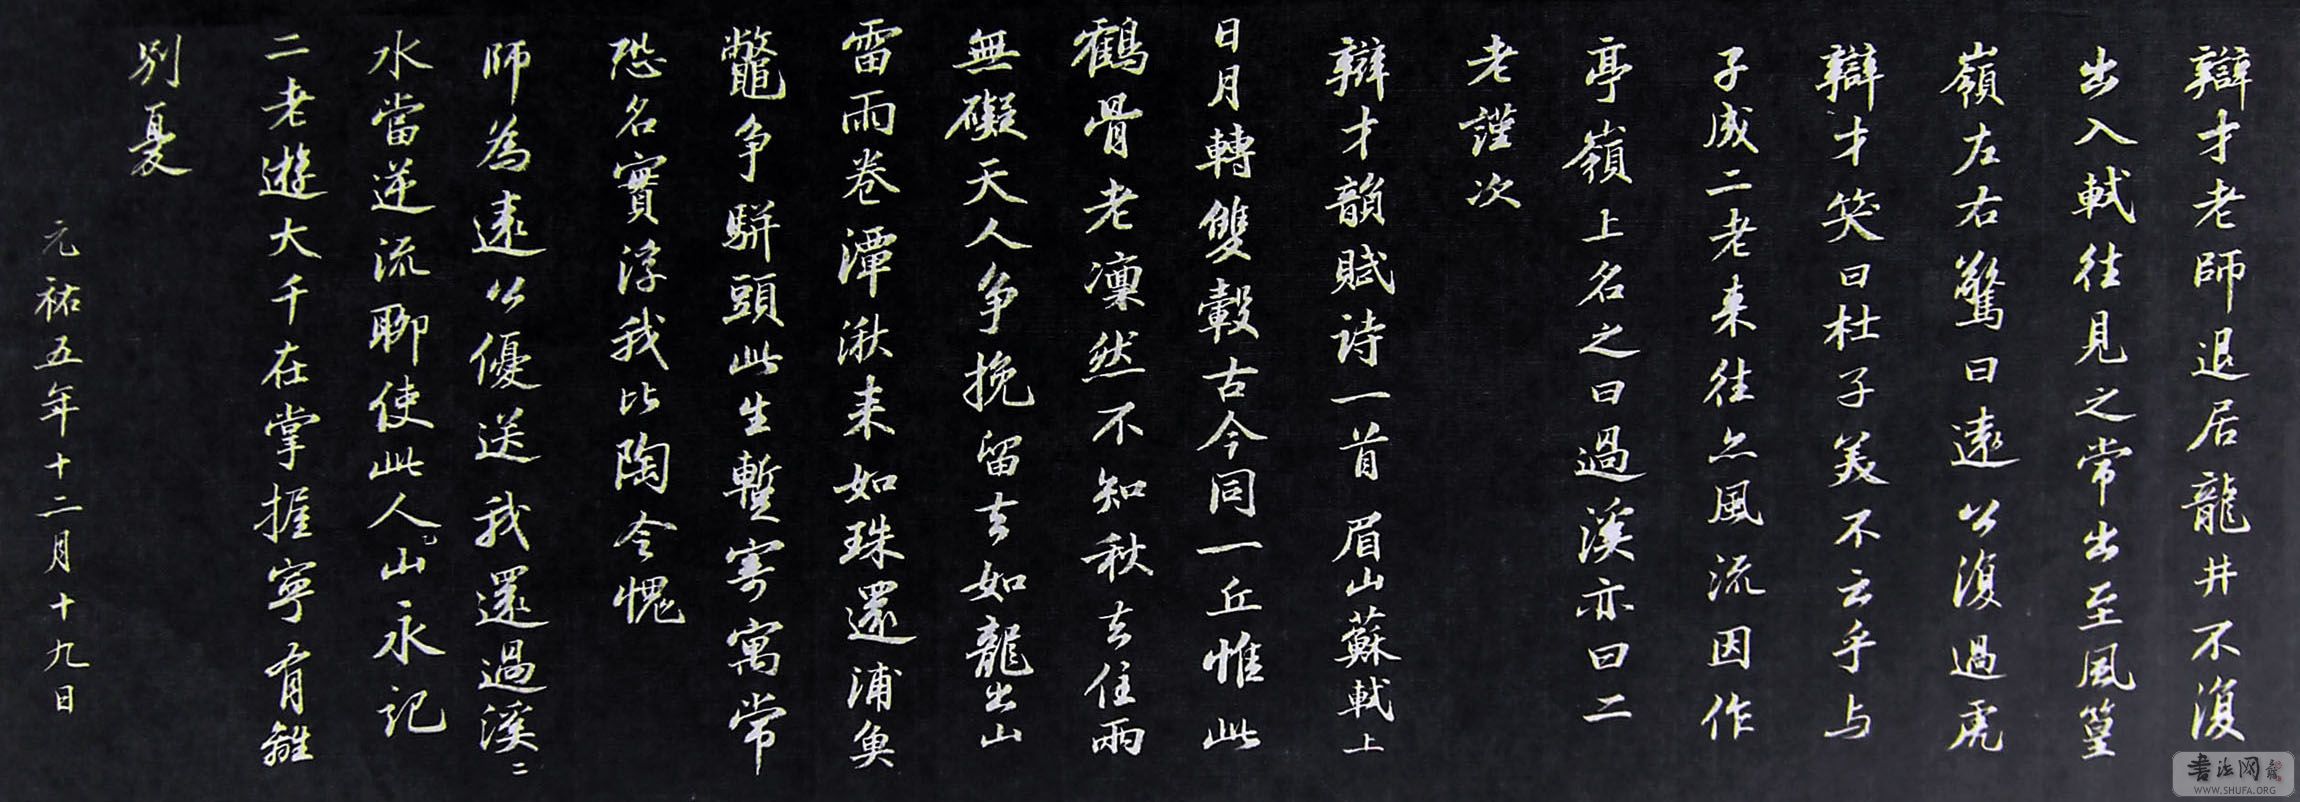 辯才老師退居龍井不復
出入軾往見之常出至風篁
嶺左右驚曰遠公復過虎
辯才笑曰杜子美不云乎与
子成二老来往亦風流因作
亭嶺上名之曰過溪亦曰二
老謹次
辯才韻賦诗一首 眉山蘇軾上
日月轉雙轂古今同一丘惟此
鶴骨老凛然不知秋去住兩
無礙天人争挽留去如龍出山
雷雨卷潭湫来如珠還浦魚
鼈争駢頭此生暫寄寓常
恐名實浮我比陶令愧
師為遠公優送我還過溪二
水當逆流聊使此人乙山永記
二老遊大千在掌握寧有離
别憂
元祐五年十二月十九日
書法网
WWW.SHUFA.ORG